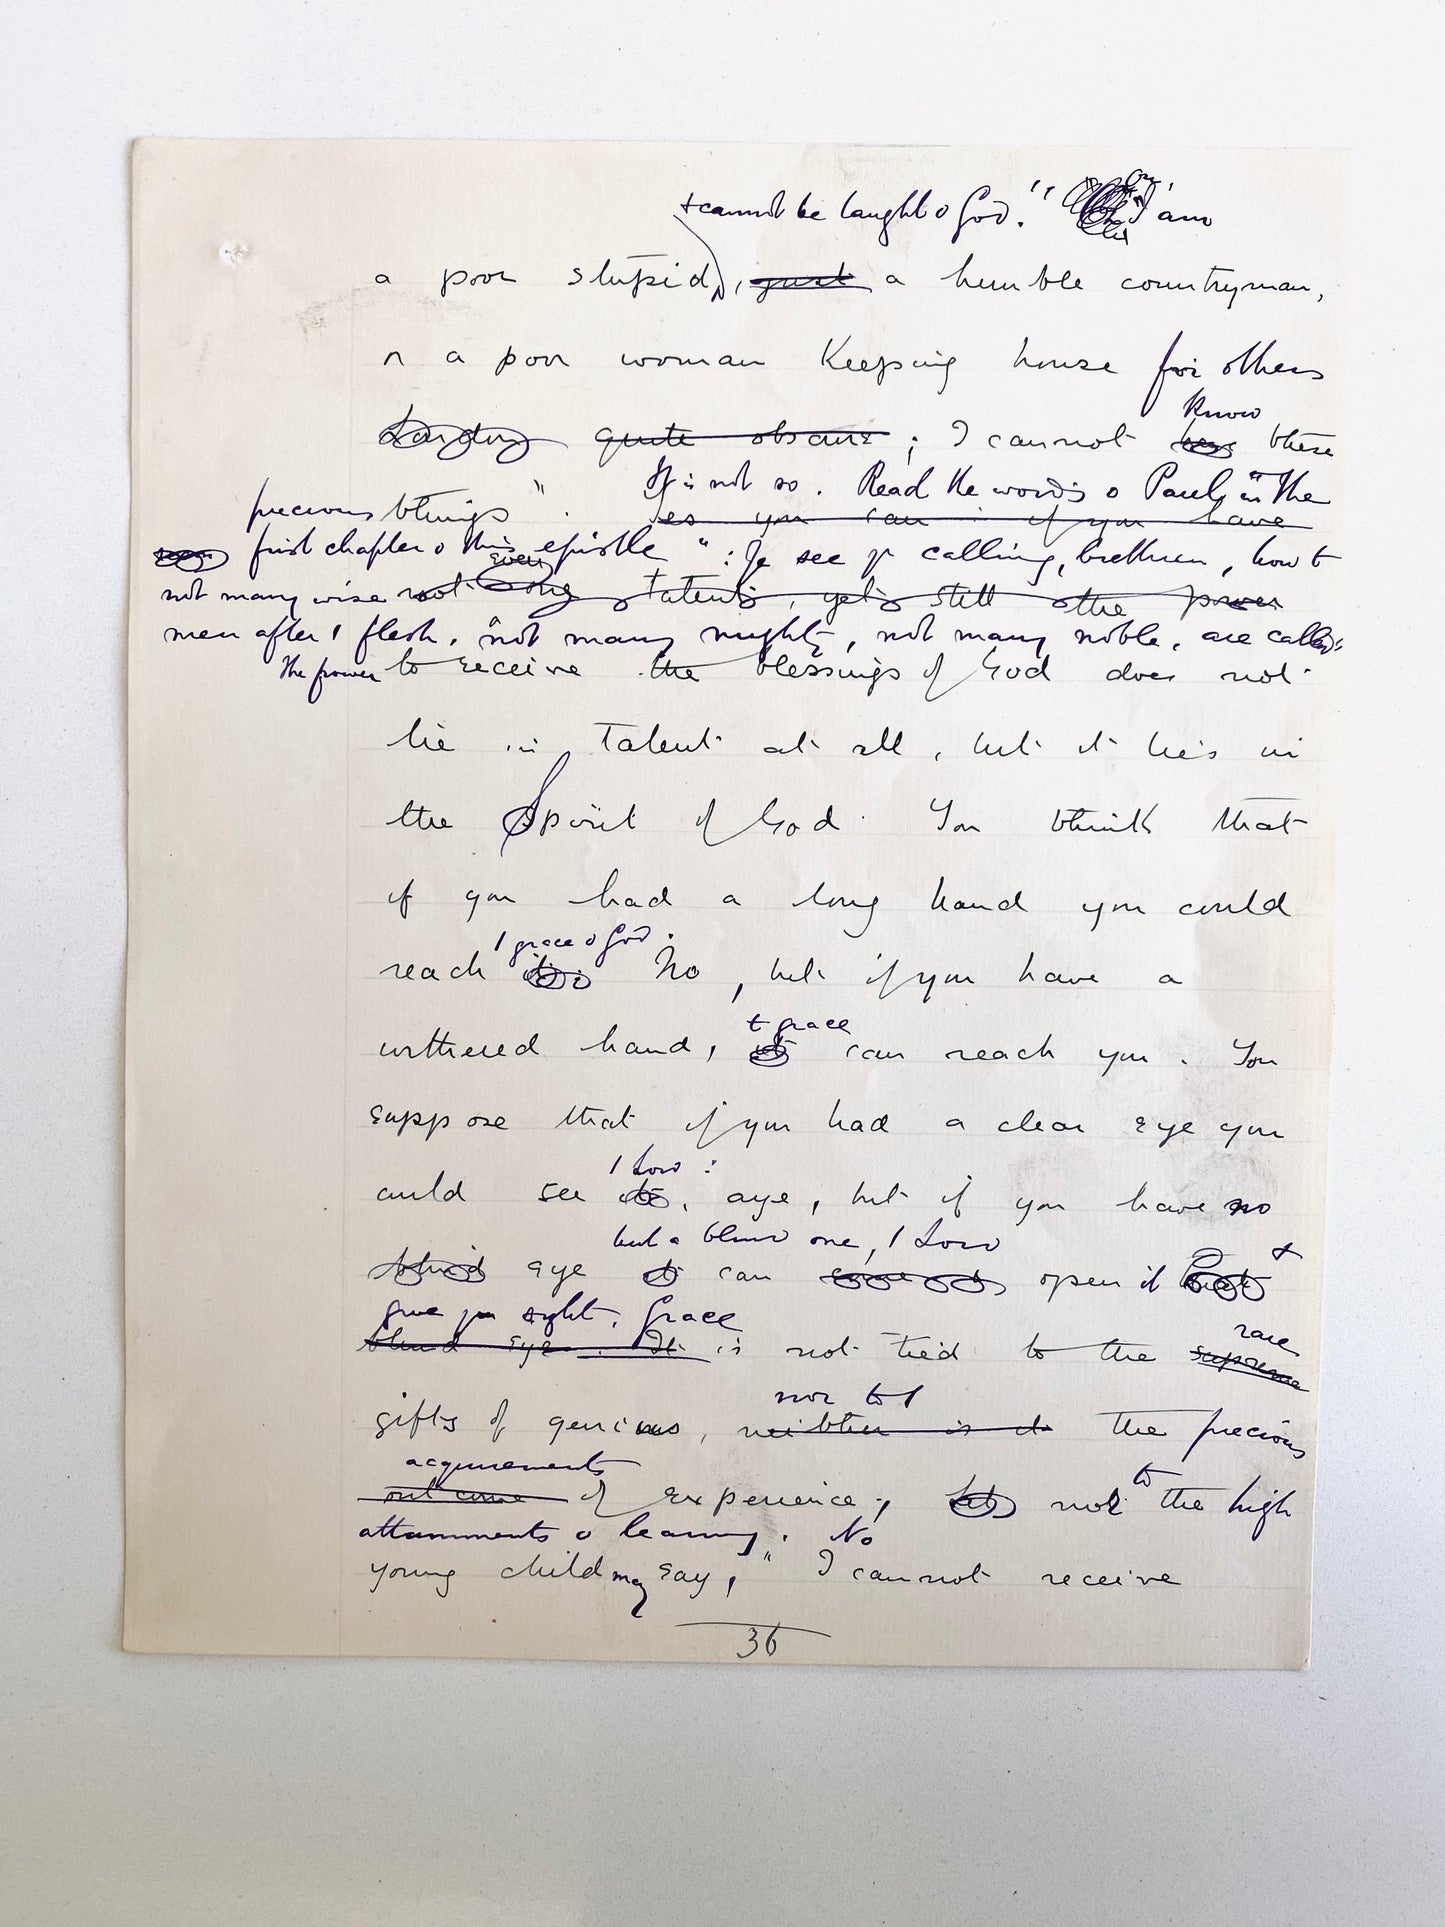 + cannot be taught o God." or, 'I am
a poor stupid, just a humble countryman,
r a poor woman Keeping house for others
know
quite obscure ; I cannot these
It is not so. Read the words o Paul, in the
precious things".
es you can if you have
first chapter o this epistle ": Ye see yr calling, brethren, how t
even
not many wise not one talent, yet still the power
men after / flesh, not many mighty, not many noble, are called:
The power to receive the blessings of God does not
lie in talent at all, but it lies in
the Spirit of God. You think that
if you had a long hand you could
/ grace o God.
reach it. No, but if you have a
t grace
withered hand, it can reach you. You
suppose that if you had a clear eye you
/ Lord :
could see it, aye, but if you have no
but a blind one, / Lord
blind eye it can come and open it but +
give you sight. Grace
blind eye. It is not tied to the supreme
rare
gifts of genius, neither is it the precious
nor to /
acquirements
outcome of experience; not to the high
attainments o learning. No
young child may say, "I cannot receive
36